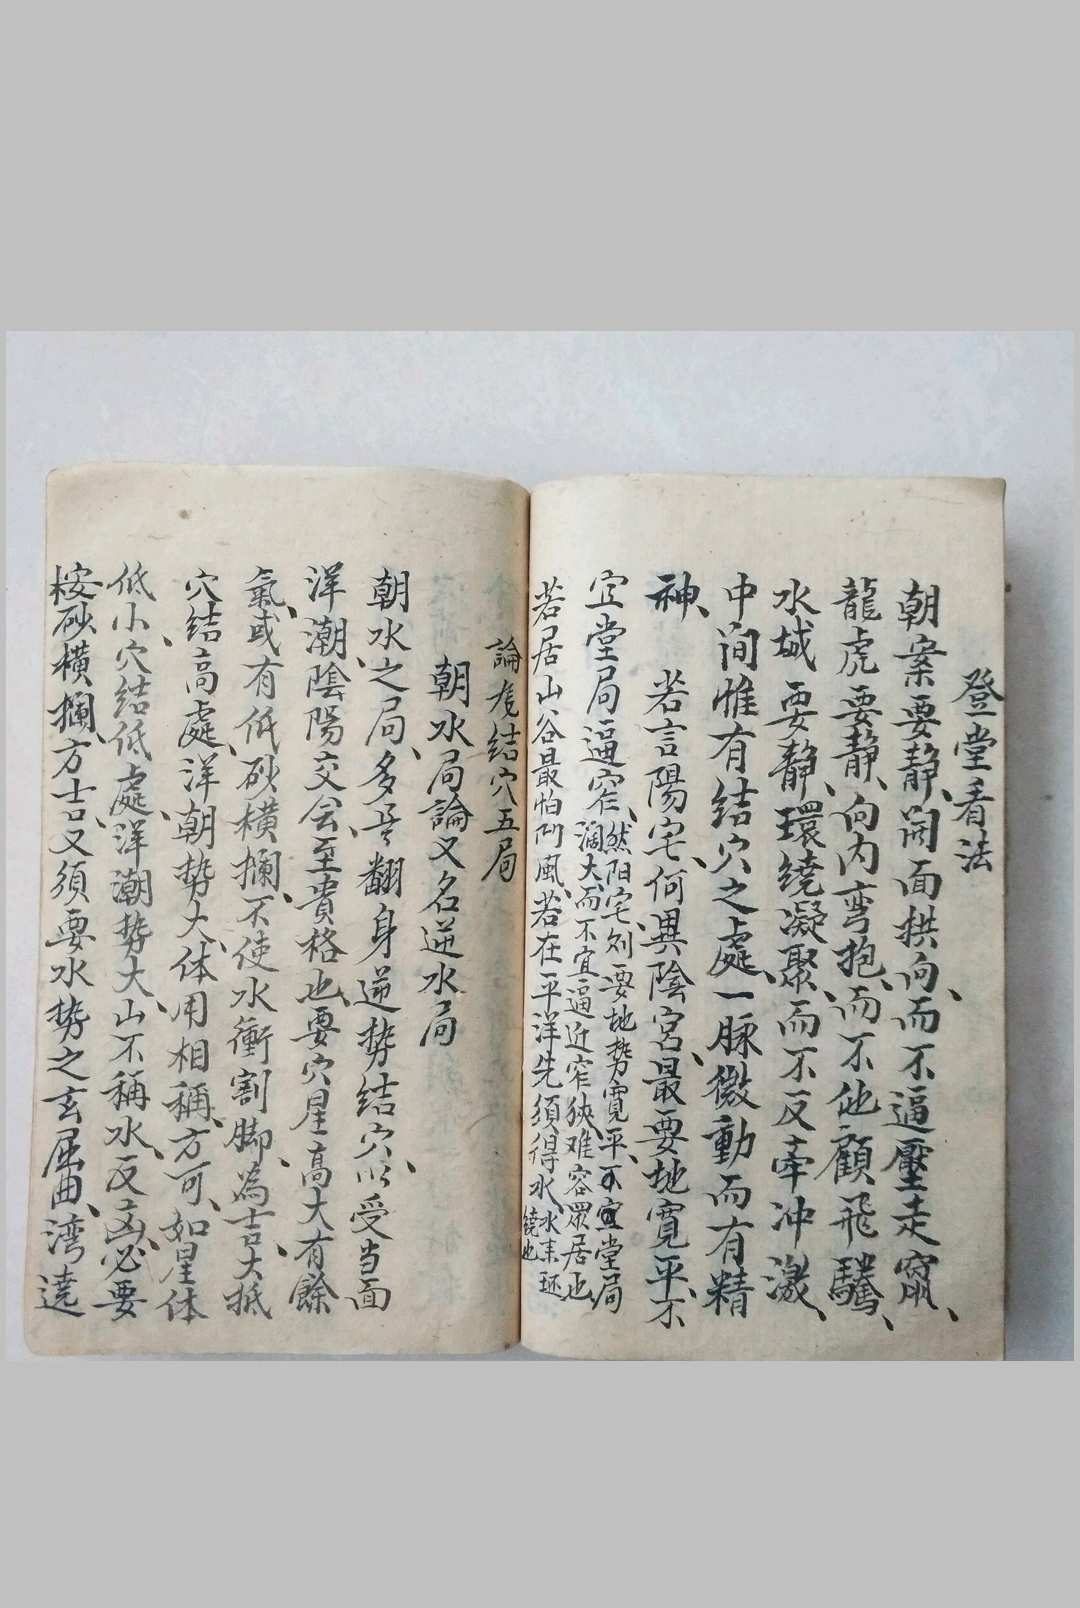 登堂看法
朝案要静、開面拱向、而不逼壓走竄、
龍虎要静、向内弯抱、而不他顧飛騰、
水城要静、環繞凝聚、而不反牽冲激、
中间惟有结穴之處、一脉微動而有精
神、
若言陽宅、何異陰宮、最要地寬平、不
宜堂局逼窄、然阳宅则要地势寬平、不宜堂局
濶大、而不宜逼近窄狹、难容眾居也
若居山谷最怕凹風、若在平洋先須得水、水来环
繞也
論龙结穴五局
朝水局論又名逆水局
朝水之局、多是翻身逆势结穴、以受当面
洋潮、陰陽交会、至貴格也、要穴星高大有餘
氣、或有低砂横攔、不使水衝割脚、為吉、大抵
穴结高處、洋朝势大、体用相稱、方可、如星体
低小、穴结低處、洋潮势大、山不稱水、反凶、必要
桉砂横攔、方吉、又須要水势之玄屈曲、湾遶